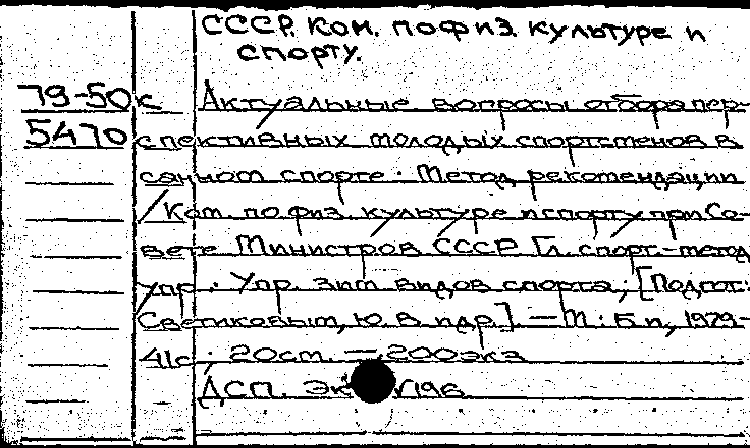 СССР. Ком. по физ. культуре и
спорту.
79-50к Актуальные вопросы отбора пер-
5470 спективных молодых спортсменов в
санном спорте. Метод рекомендации
/Ком. по физ. культуре и спорту при Со-
вете Министров СССР. Гл. спорт.-метод
упр.. Упр. зим видов спорта; [Подгот:
Свечиковым, Ю. В. и др.]. — М.: Б. и, 1979-
41с; 20см. — 200экз
ДСП. Эк